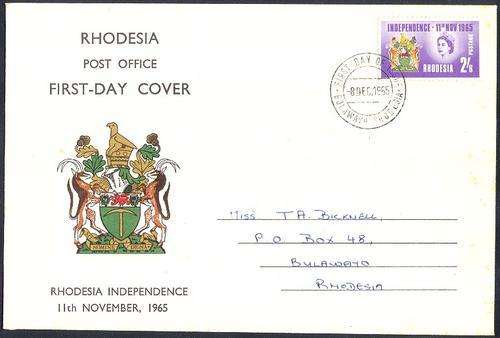 RHODESIA
POST OFFICE
FIRST-DAY COVER
INDEPENDENCE - 11TH NOV 1965
POSTAGE
RHODESIA 2/6
FIRST DAY OF ISSUE
8 DEC 1965
BULAWAYO RHODESIA
SIT NOMINE DIGNA
MISS T.A. BICKNELL,
P O BOX 48,
BULAWAYO
RHODESIA
RHODESIA INDEPENDENCE
11th NOVEMBER, 1965